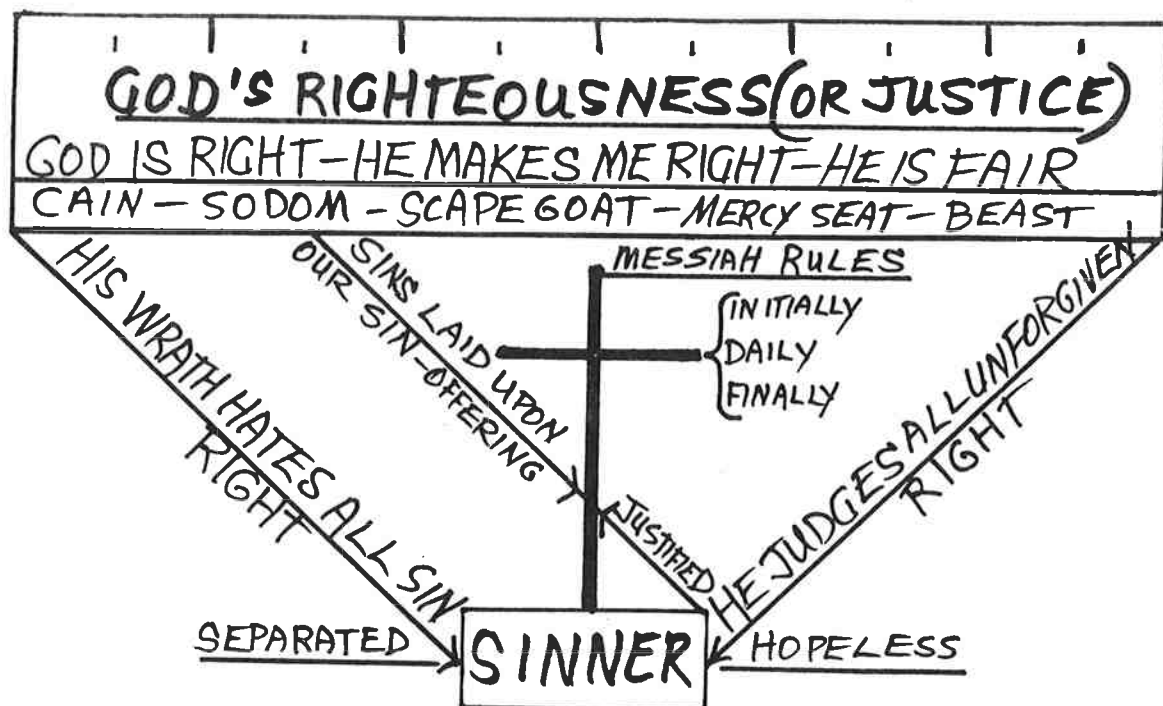 GOD'S RIGHTEOUSNESS (OR JUSTICE)
GOD IS RIGHT-HE MAKES ME RIGHT-HE IS FAIR
CAIN - SODOM - SCAPEGOAT - MERCY SEAT - BEAST
HIS WRATH HATES ALL SIN
RIGHT
SINS LAID UPON
OUR SIN-OFFERING
MESSIAH RULES
INITIALLY
DAILY
FINALLY
JUSTIFIED
HE JUDGES ALL UNFORGIVEN
RIGHT
SEPARATED
SINNER
HOPELESS